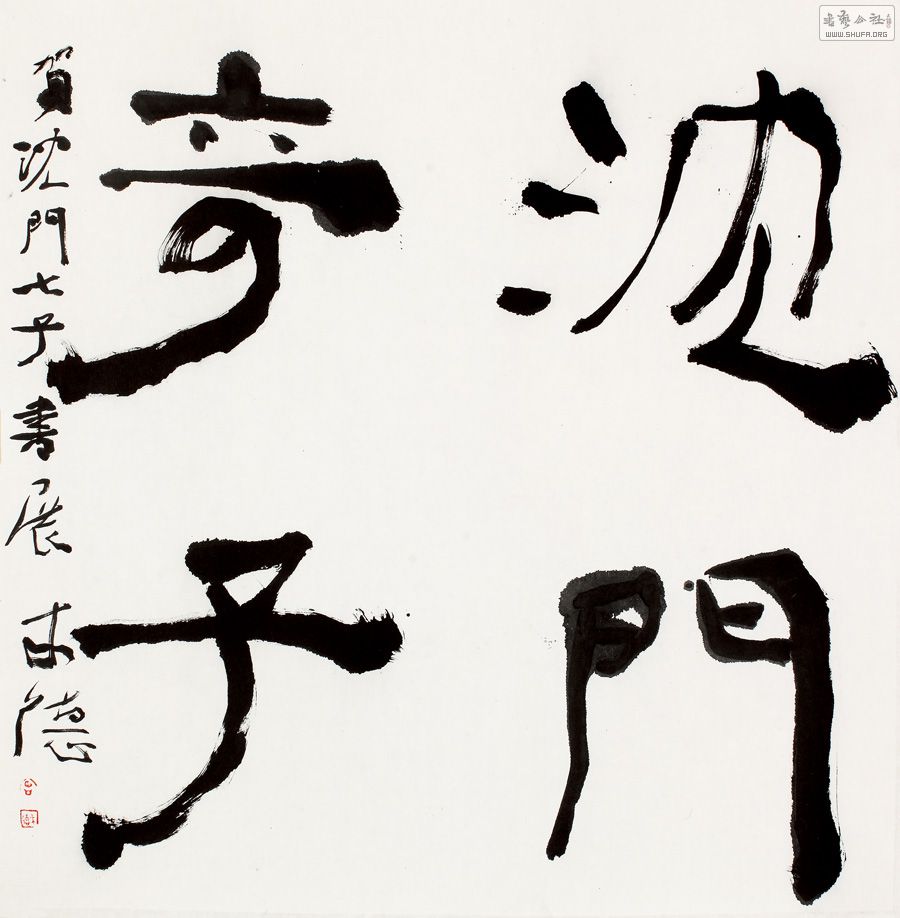 沈門
竒子
賀沈門七子書展 德
書藝公社
WWW.SHUFA.ORG